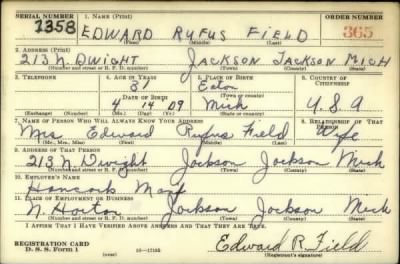 SERIAL NUMBER 1. NAME (Print) ORDER NUMBER
1358 EDWARD RUFUS FIELD 365
(First) (Middle) (Last)
2. ADDRESS (Print)
213 N. DWIGHT JACKSON JACKSON MICH
(Number and street or R. F. D. number) (Town) (County) (State)
3. TELEPHONE 4. AGE IN YEARS 5. PLACE OF BIRTH 6. COUNTRY OF CITIZENSHIP
31 Eaton
DATE OF BIRTH (Town or county)
4 14 09 Mich U.S.A
(Mo.) (Day) (Yr.) (State or country)
7. NAME OF PERSON WHO WILL ALWAYS KNOW YOUR ADDRESS 8. RELATIONSHIP OF THAT PERSON
Mrs Edward Rufus Field Wife
(Mr., Mrs., Miss) (First) (Middle) (Last)
9. ADDRESS OF THAT PERSON
213 N. Dwight Jackson Jackson Mich
(Number and street or R. F. D. number) (Town) (County) (State)
10. EMPLOYER'S NAME
Hancock Manf
11. PLACE OF EMPLOYMENT OR BUSINESS
N. Horton Jackson Jackson Mich
(Number and street or R. F. D. number) (Town) (County) (State)
I AFFIRM THAT I HAVE VERIFIED ABOVE ANSWERS AND THAT THEY ARE TRUE.
REGISTRATION CARD
D. S. S. Form 1 (over) 16—17105
Edward R. Field
(Registrant's signature)